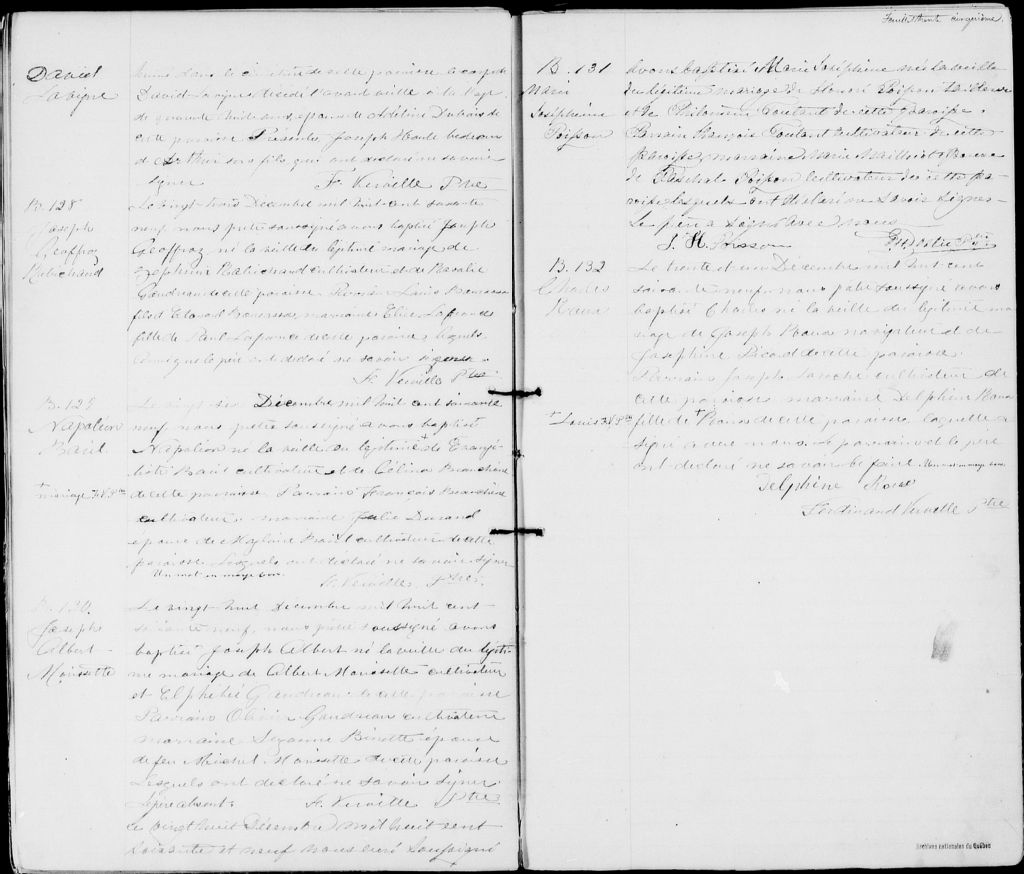 David
Lavigne
inhumé dans le cimetière de cette paroisse le corps de
David Lavigne décédé l'avant veille à l'âge
de quarante huit ans, époux de Adeline Dubois de
cette paroisse Présents, Joseph Houle bedeau
et Arthur son fils qui ont déclaré ne savoir
signer
F. Verville Ptre
B. 128
Joseph
Geoffroy
Robichaud
Le vingt trois Décembre mil huit cent soixante
neuf nous prêtre soussigné avons baptisé Joseph
Geoffroy né la veille du légitime mariage de
Zéphirin Robichaud cultivateur et de Rosalie
Gaudreau de cette paroisse. Parrain Louis
fils de Edouard marraine Elise Lafrance
fille de Paul Lafrance de cette paroisse lesquels
le père ont déclaré ne savoir signer.
F. Verville Ptre
B. 129
Napoléon
Baril
+ mariage F.V. Ptre
Le vingt six Décembre mil huit cent soixante
neuf nous prêtre soussigné avons baptisé
Napoléon né la veille du légitime + de Evangé-
liste Baril cultivateur et de Célina Beauchêne
de cette paroisse. Parrain François Beauchêne
cultivateur, marraine Julie Durand
épouse de Baril cultivateur de cette
paroisse Lesquels ont déclaré ne savoir signer
Un mot en marge bon.
F. Verville, Ptre
B. 130.
Joseph
Albert
Morissette
Le vingt-huit Décembre mil huit cent
soixante neuf, nous prêtre soussigné avons
baptisé Joseph Albert né la veille du légiti-
me mariage de Albert Morissette cultivateur
et Gaudreau de cette paroisse
Parrain Olivier Gaudreau cultivateur
marraine Suzanne Binette épouse
de feu Michel Morissette de cette paroisse
Lesquels ont déclaré ne savoir signer
Le père absent. F. Verville Ptre
Le vingt huit Décembre mil huit cent
soixante et neuf nous curé soussigné
Feuillet trente cinquième.
B. 131
Marie
Joséphine
Poisson
Avons baptisé Marie Joséphine née la veille
du légitime mariage de Honoré Poisson
et de Philomène Toutant de cette Paroisse.
Parrain François Toutant cultivateur de cette
paroisse, marraine Marie Mailhiot épouse
de Paschal Poisson cultivateur de cette pa-
roisse lesquels ont déclaré ne savoir signer
Le père a signé avec nous
J. H. Poisson
Ptre
B. 132
Charles
Roux
Le trente et un Décembre mil huit cent
soixante neuf nous prêtre soussigné avons
baptisé Charles né la veille du légitime ma-
riage de Joseph Roux navigateur et de
Joséphine Picard de cette paroisse.
Parrain Joseph Laroche cultivateur de
cette paroisse marraine Delphine Roux
+ Louis F.V. Ptre
fille de + Roux de cette paroisse, laquelle a
signé avec nous. Le parrain et le père
ont déclaré ne savoir le faire. Un mot en marge bon.
Delphine Roux
Ferdinand Verville Ptre
Archives nationales du Québec